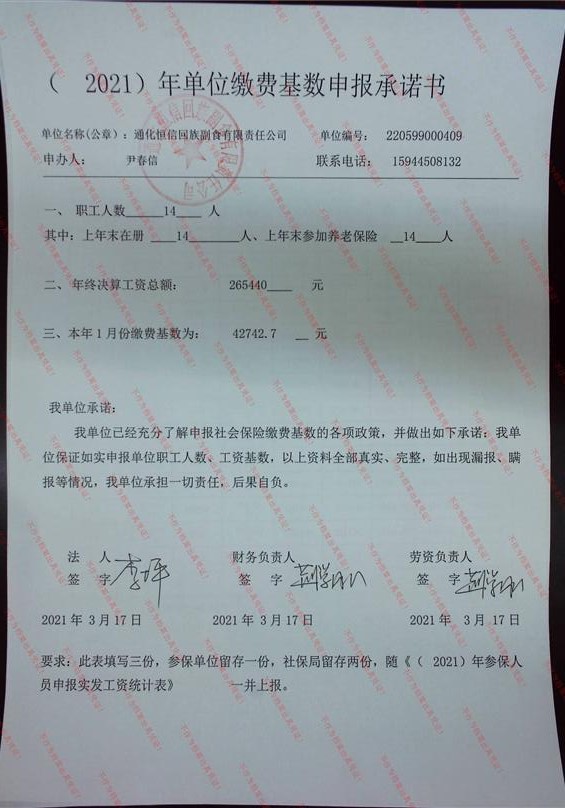 （ 2021）年单位缴费基数申报承诺书
单位名称(公章)：通化恒信回族副食有限责任公司 单位编号： 220599000409
申办人： 尹春信 联系电话： 15944508132
一、 职工人数______14____ 人
其中：上年末在册 ____14________人、上年末参加养老保险 __14____人
二、 年终决算工资总额： 265440____ 元
三、本年 1 月份缴费基数为： 42742.7 __ 元
我单位承诺：
我单位已经充分了解申报社会保险缴费基数的各项政策，并做出如下承诺：我单
位保证如实申报单位职工人数、工资基数，以上资料全部真实、完整，如出现漏报、瞒
报等情况，我单位承担一切责任，后果自负。
法 人 财务负责人 劳资负责人
签 字 签 字 签 字
2021 年 3 月 17 日 2021 年 3 月 17 日 2021 年 3 月 17 日
要求：此表填写三份，参保单位留存一份，社保局留存两份，随《（ 2021）年参保人
员申报实发工资统计表》 一并上报。